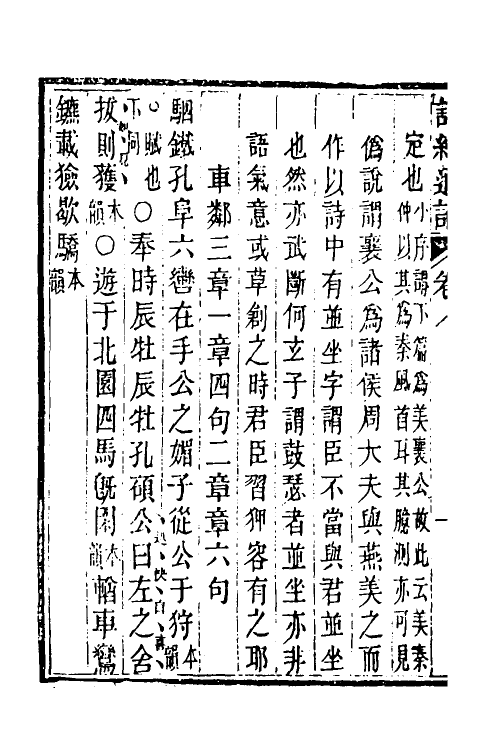 詩經通論 卷八 一
定也小序謂下篇爲美襄公故此云美秦
仲以其爲秦風首耳其臆測亦可見
僞說謂襄公爲諸侯周大夫與燕美之而
作以詩中有並坐字謂臣不當與君並坐
也然亦武斷何玄子謂鼓瑟者並坐亦非
語氣意或草創之時君臣習狎容有之耶
車鄰三章一章四句二章章六句
駟鐵孔阜六轡在手公之媚子從公于狩本韻
○賦也下同○奉時辰牡辰牡孔碩公曰左之舍
拔則獲本韻○遊于北園四馬旣閑本韻輶車鸞
鑣載獫歇驕本韻